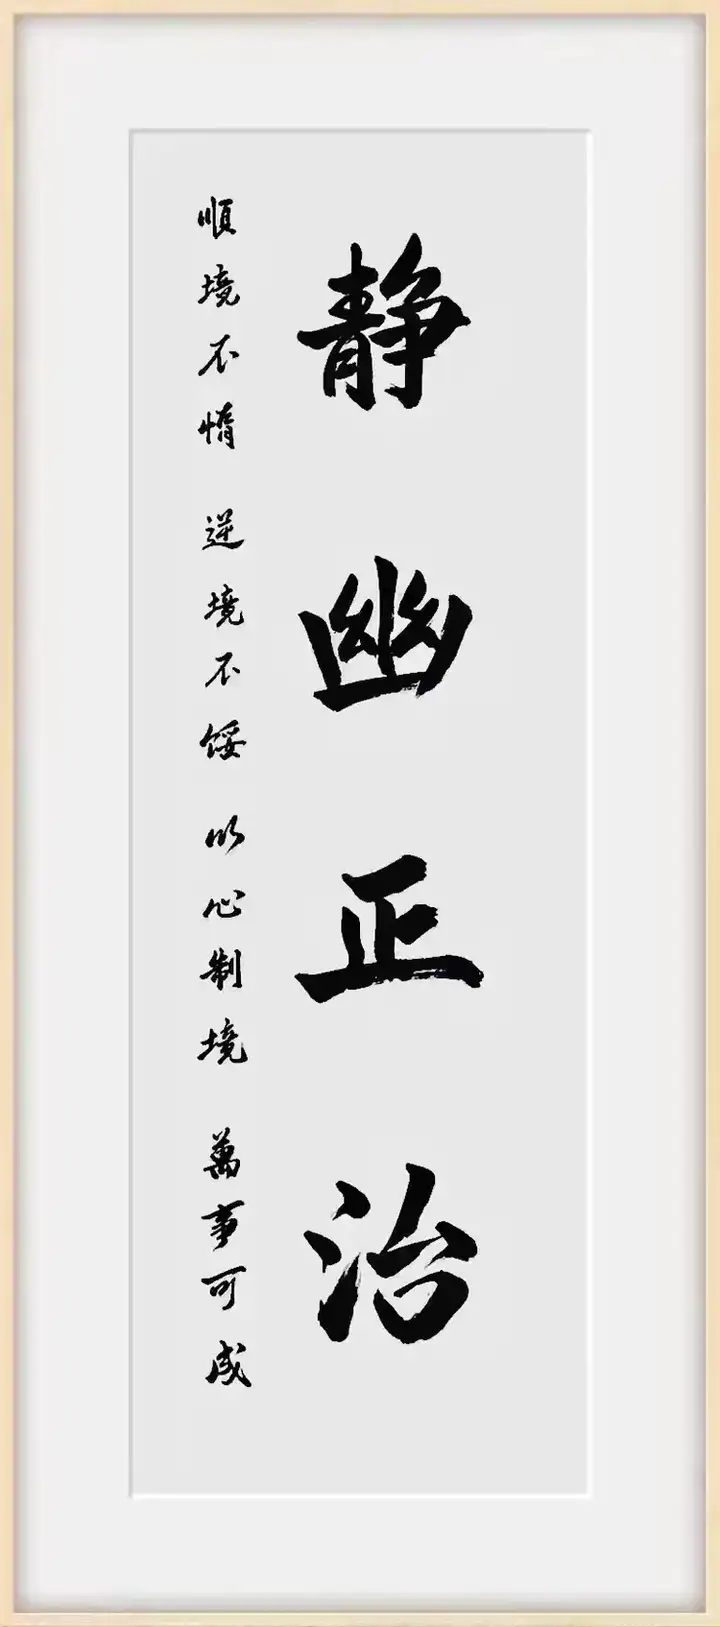 静幽正治
順境不惰 逆境不餒 以心制境 萬事可成